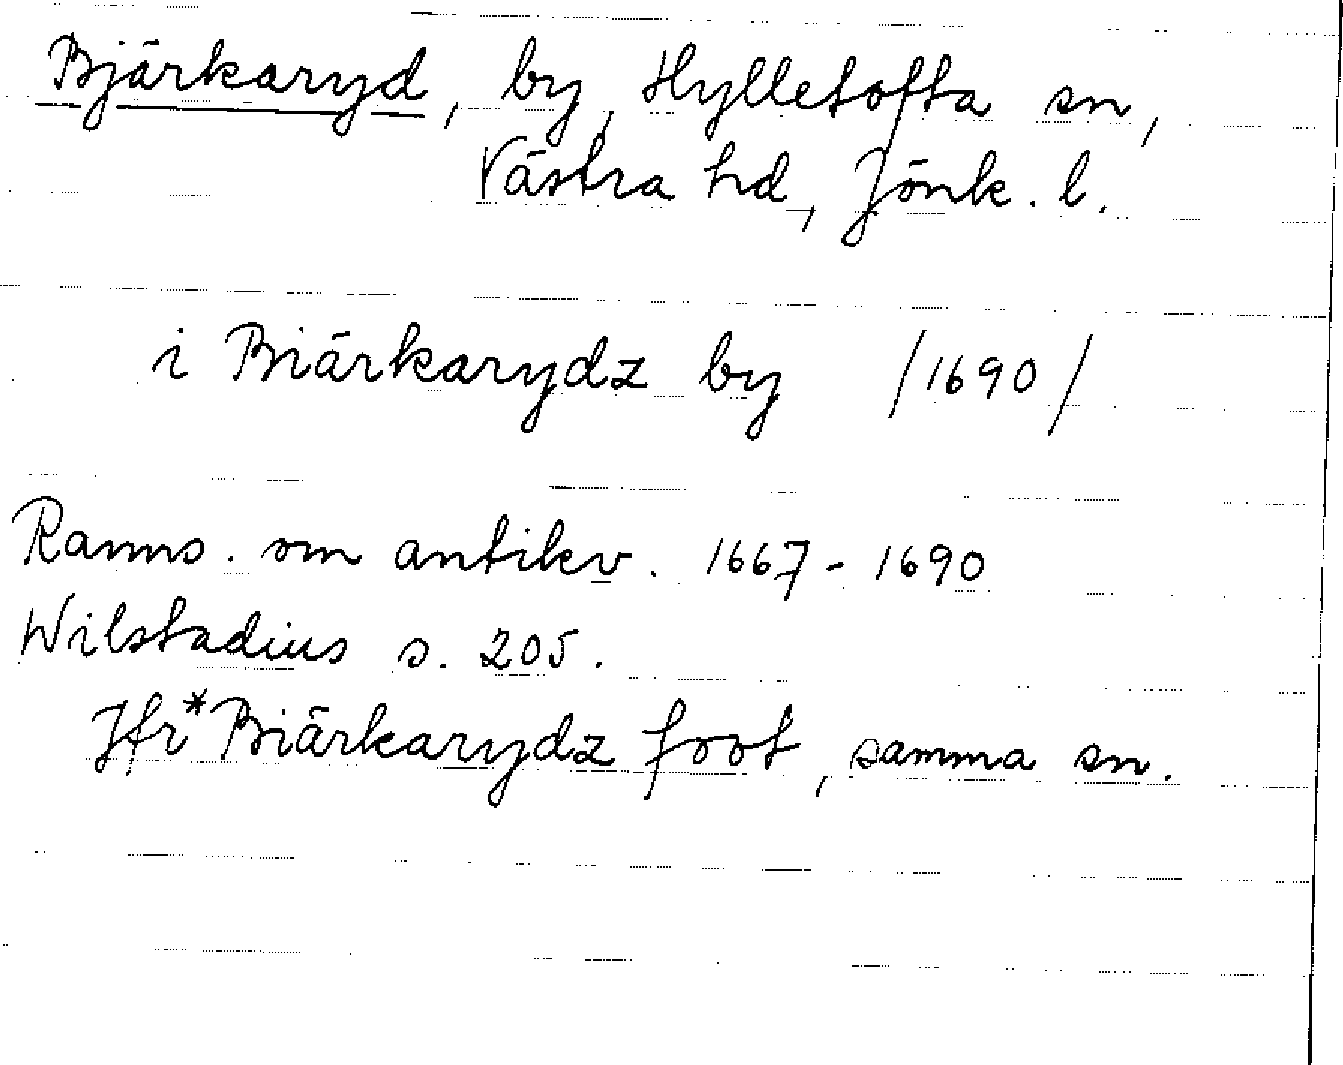 Bjärkaryd, by, Hylletofta sn,
Västra hd, Jönk. l.
i Biärkarydz by /1690/
Ranns. om antikv. 1667-1690
Wilstadius s. 205.
Jfr *Biärkarydz foot, samma sn.